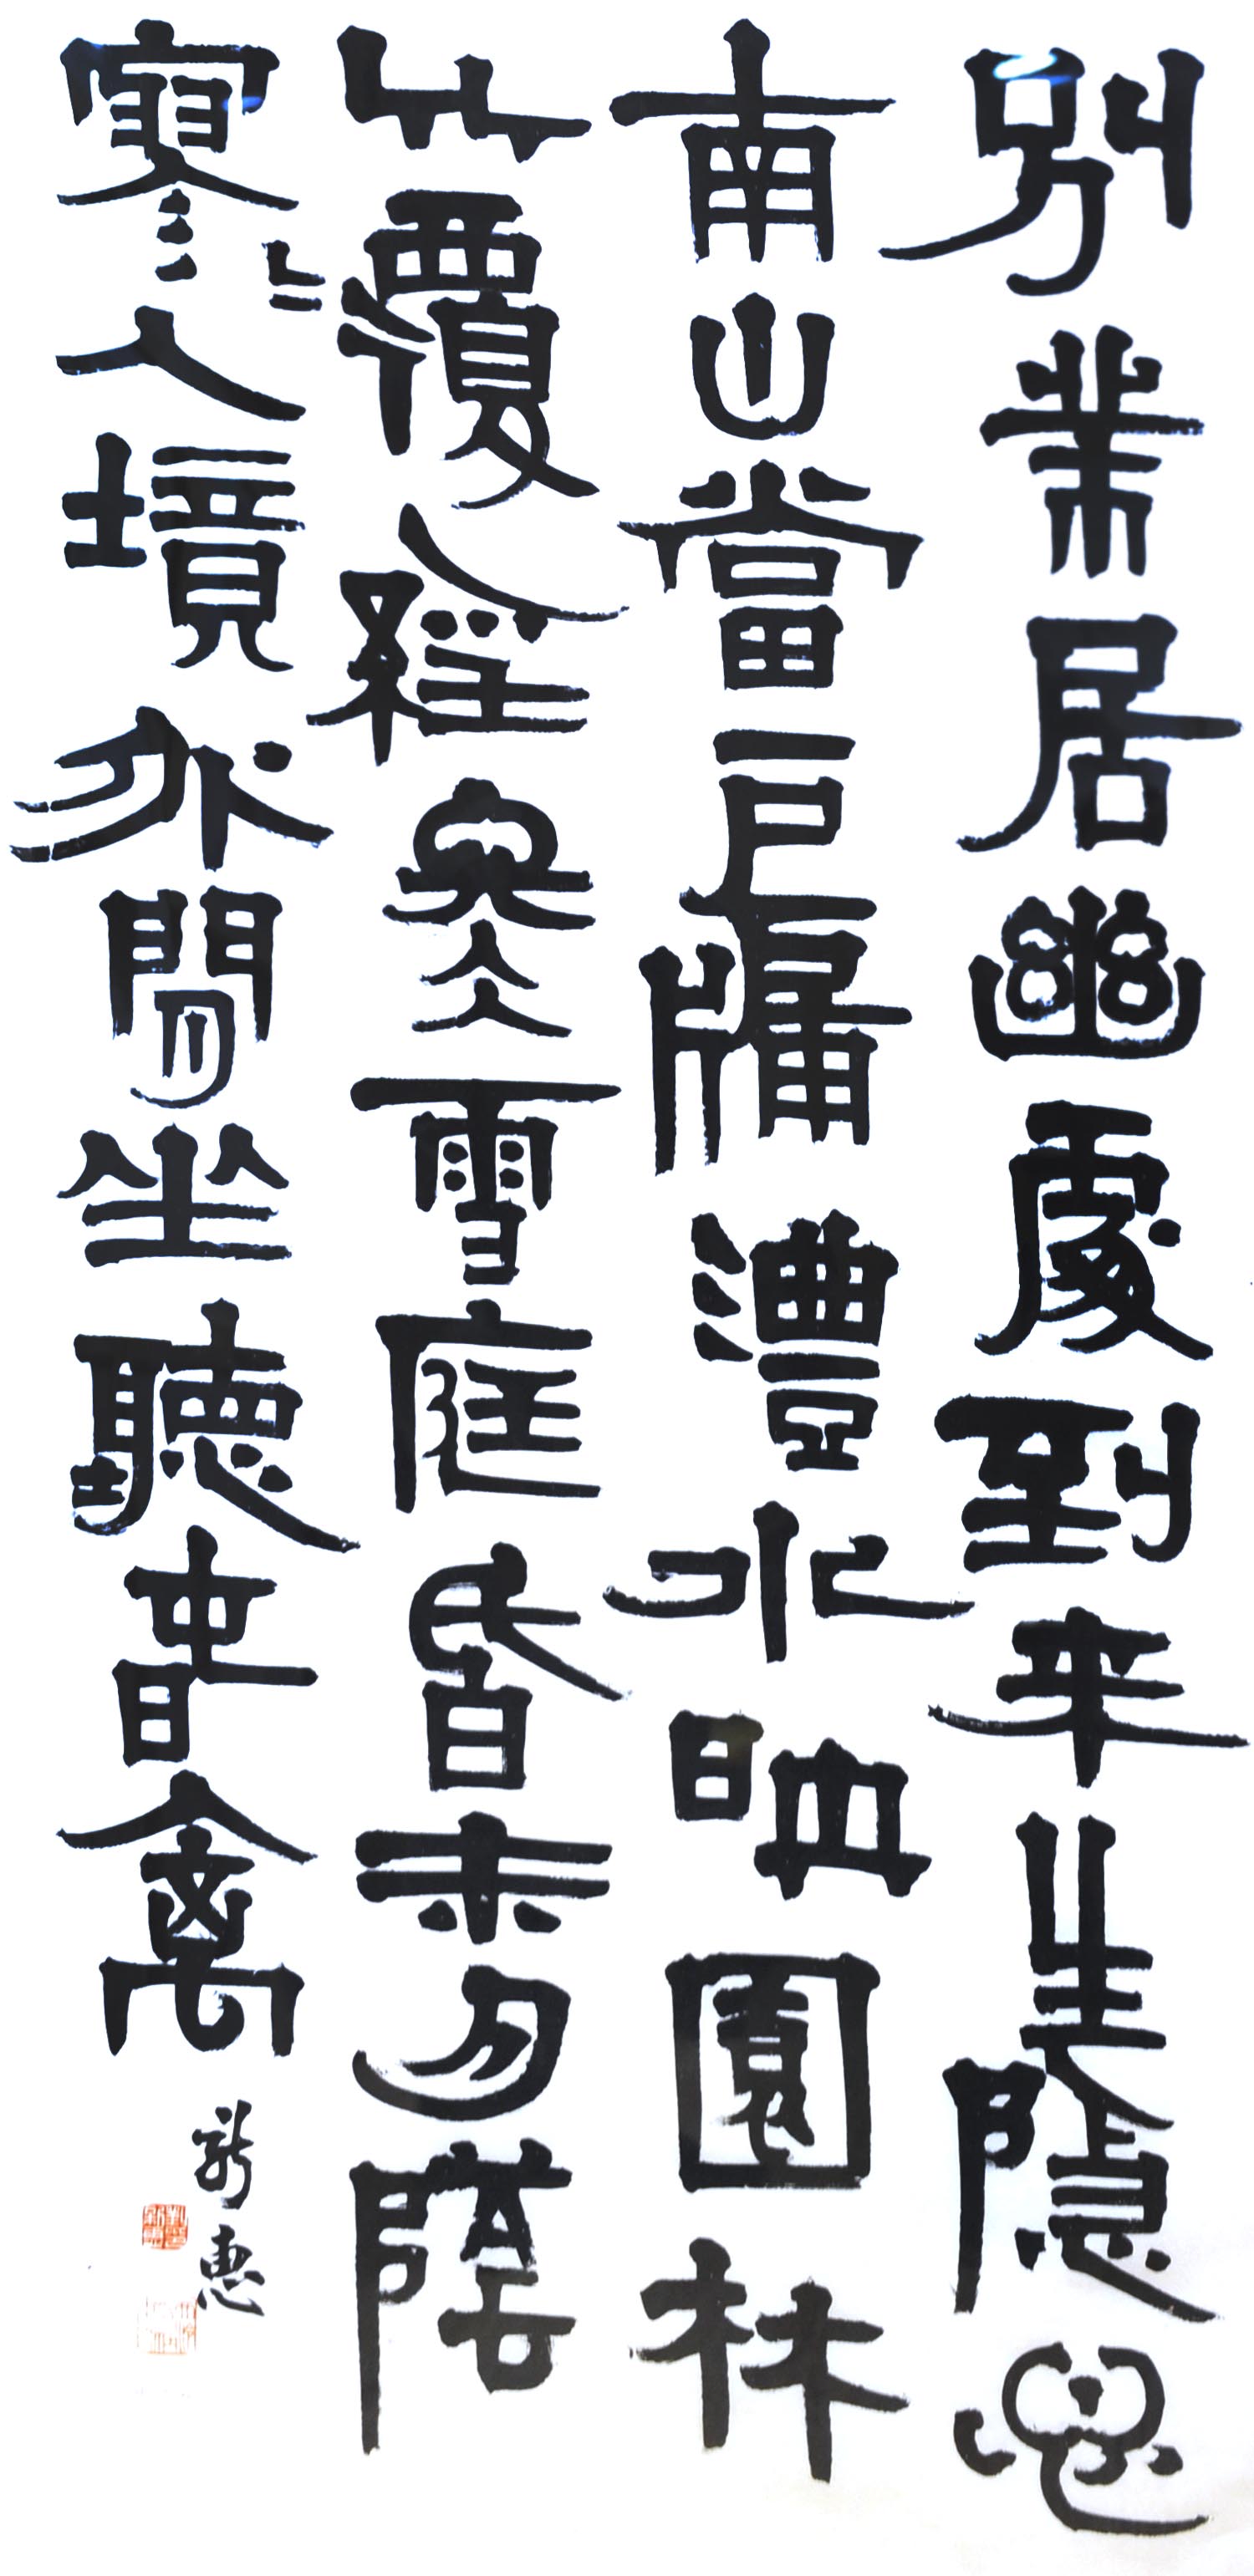 別業居幽處到来生隱心
南山當戶牖澧水映園林
竹覆經冬雪庭昏未夕陰
寥〻人境外閒坐聽春禽
新惠